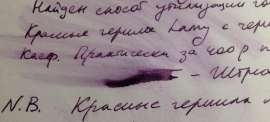 Найден способ утилизации го
Красные чернила Lamy с черн
Кабф. Практически за 400 р п
— Штрих
N.B. Красные чернила